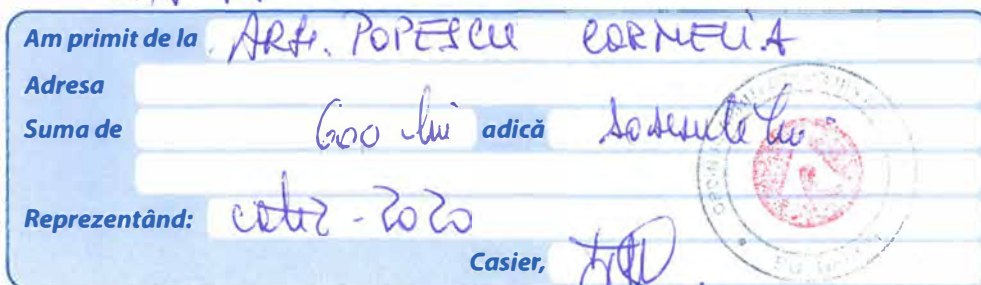 Am primit de la ARH. POPESCU CORNELIA
Adresa
Suma de 600 lei adică sasesute lei
Reprezentând: cotiz - 2020
Casier,